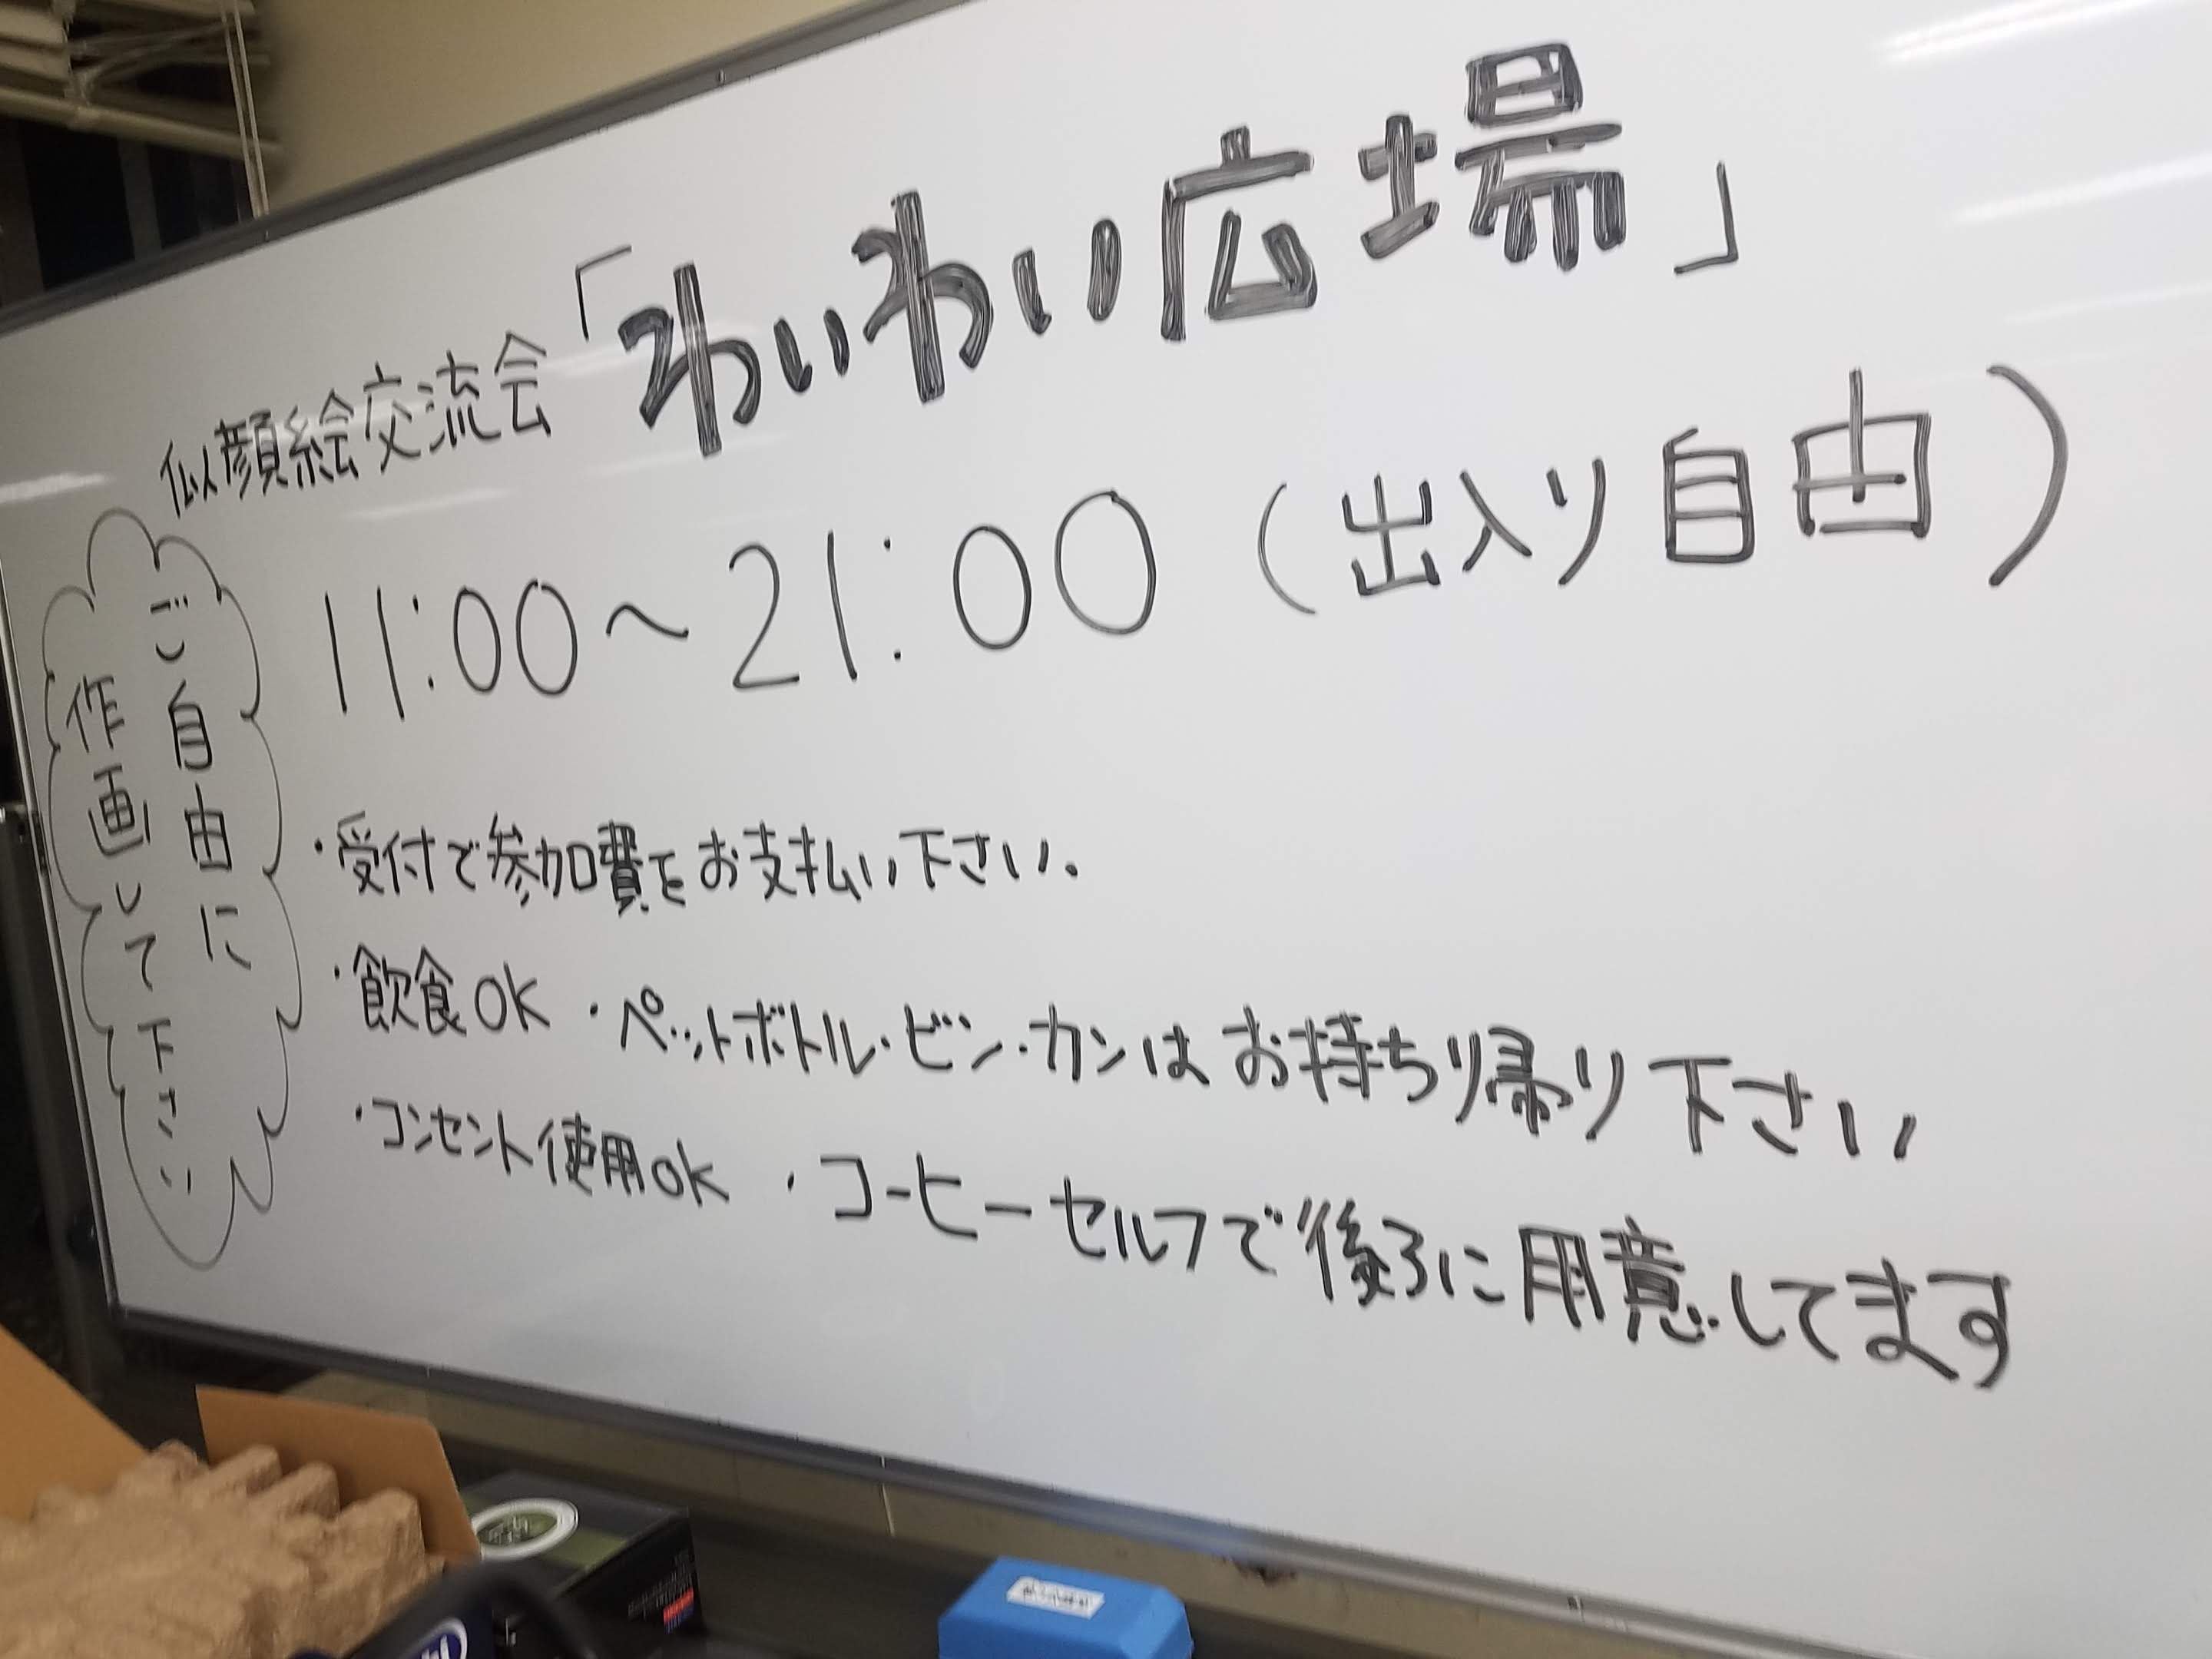 似顔絵交流会「わいわい広場」
11:00～21:00（出入り自由）
ご自由に
作画して下さい
・受付で参加費をお支払い下さい。
・飲食OK ・ペットボトル・ビン・カンはお持ち帰り下さい
・コンセント使用OK ・コーヒーセルフで後ろに用意してます